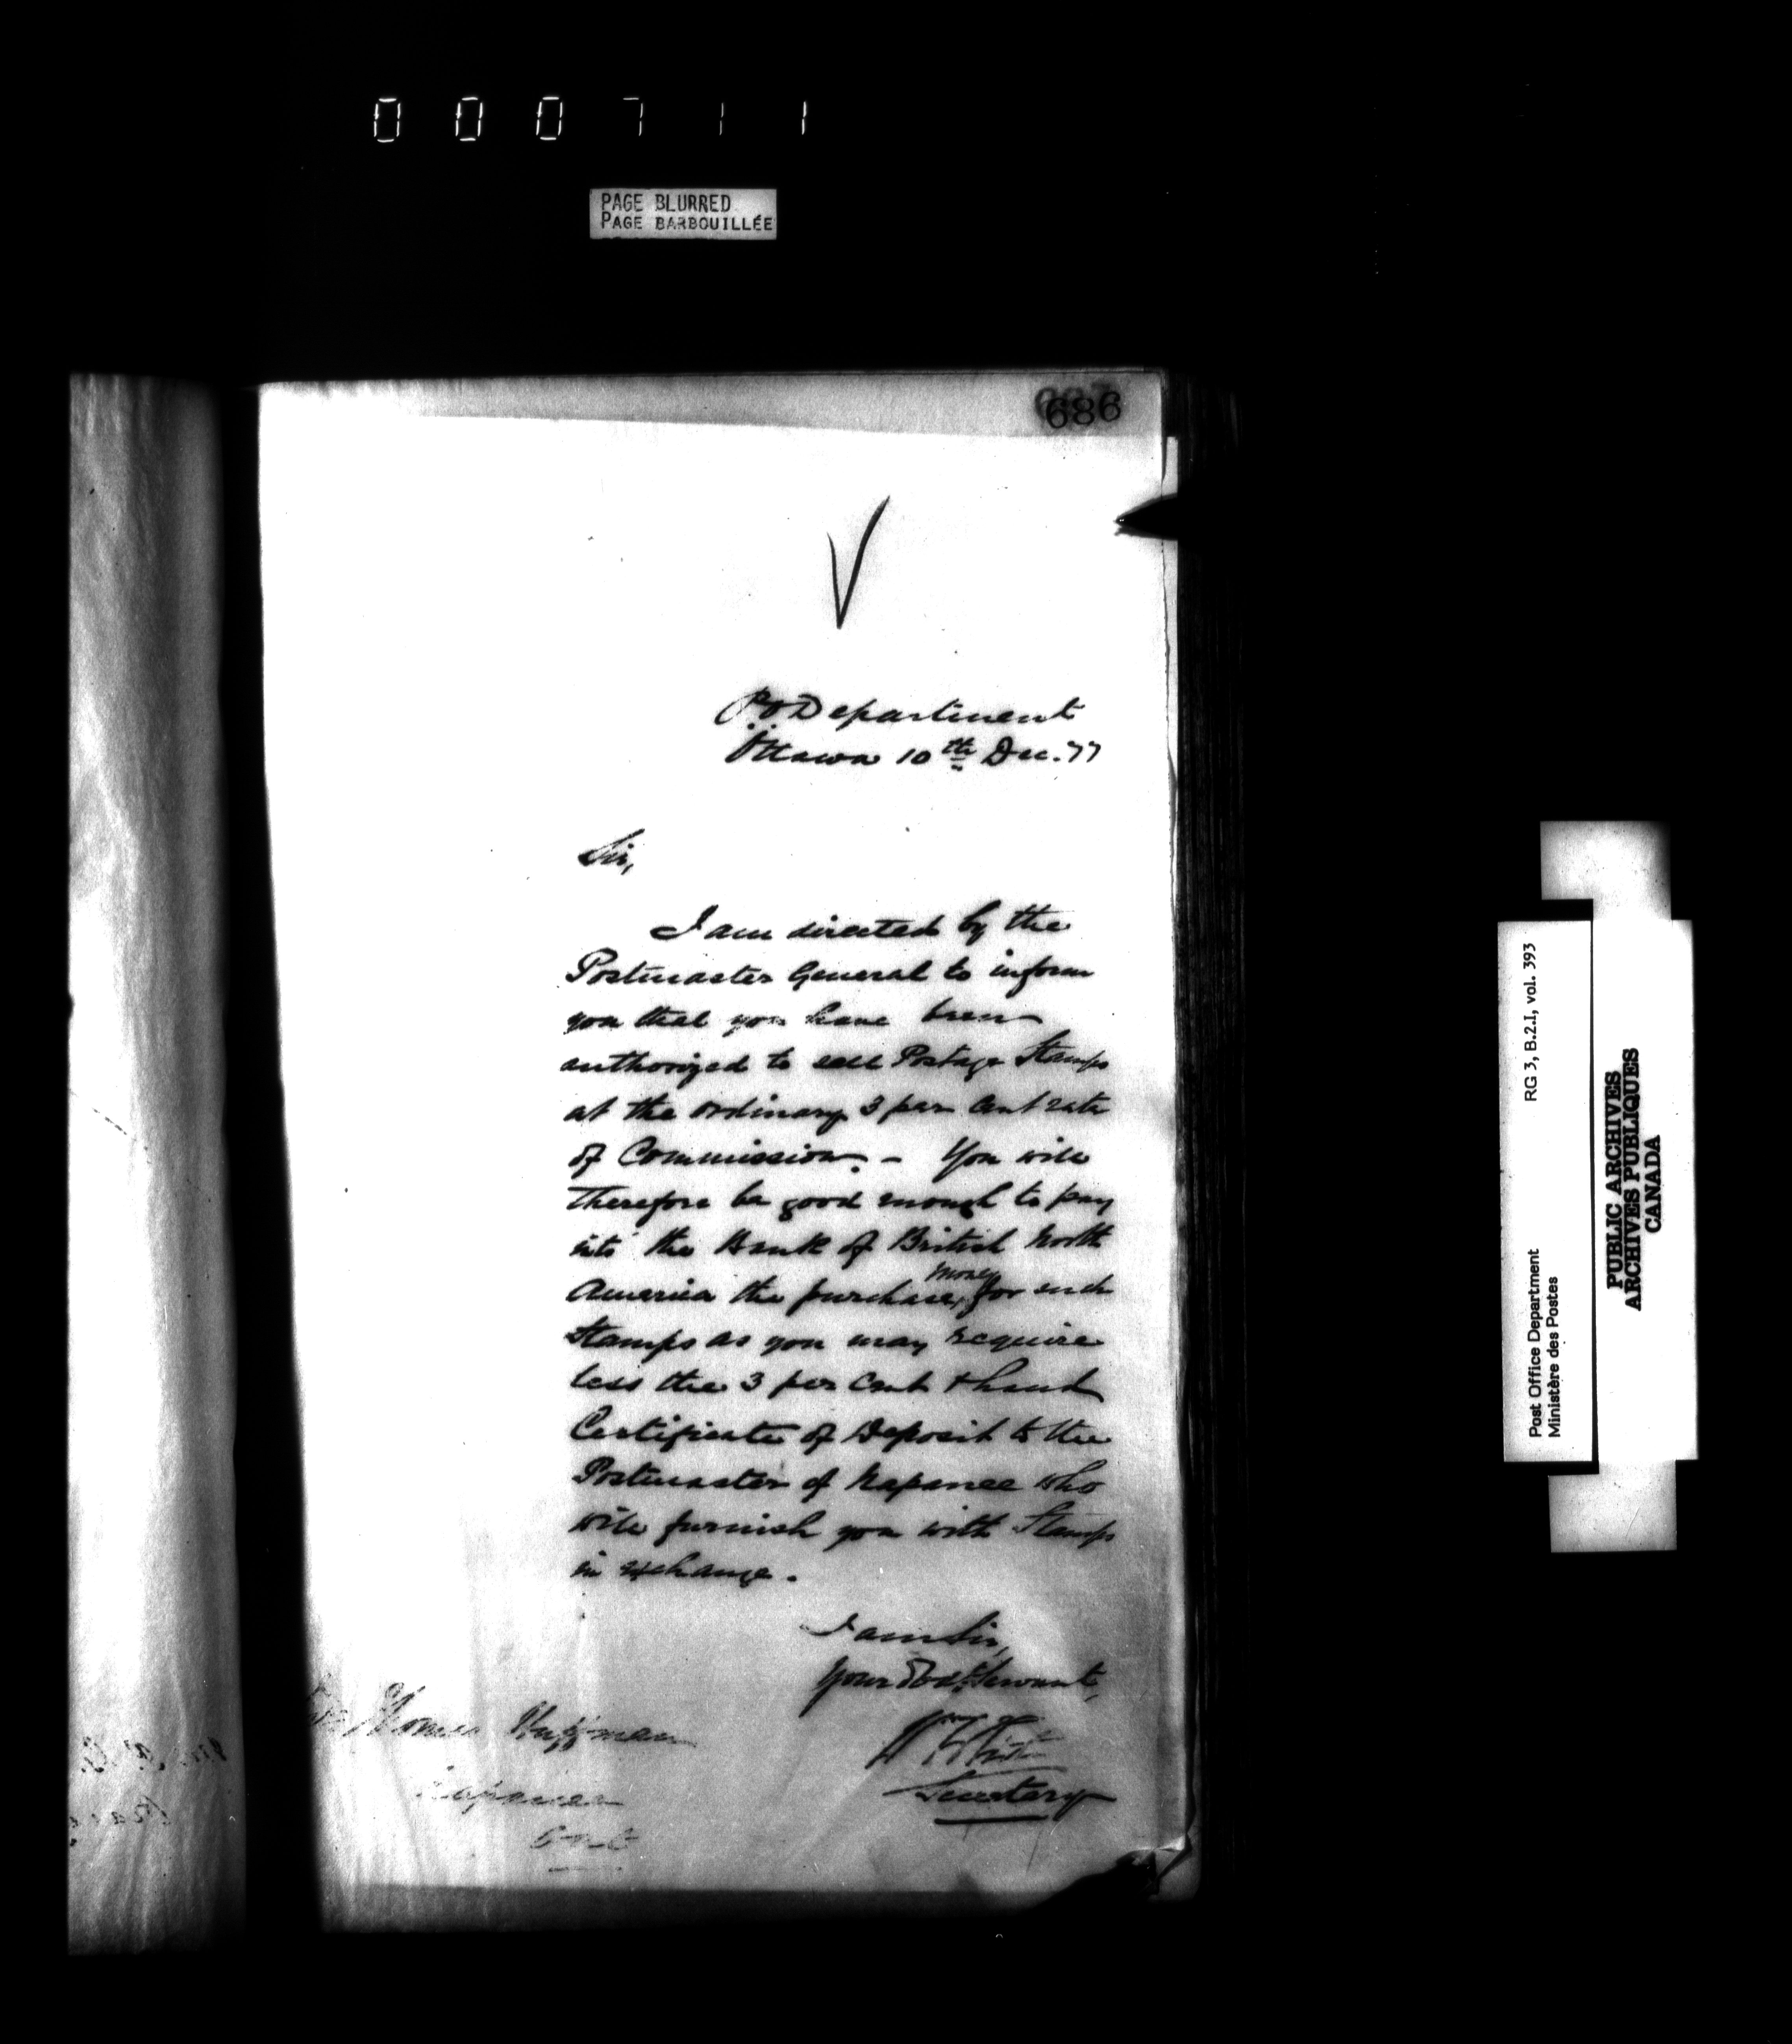 000711
PAGE BLURRED
PAGE BARBOUILLÉE
686
P.O. Department
Ottawa 10th Dec. 77
Sir,
I am directed by the
Postmaster General to inform
you that you have been
authorized to sell Postage Stamps
at the ordinary 3 per cent rate
of Commission. - You will
therefore be good enough to pay
into the Bank of British North
America the purchase money for such
Stamps as you may require
less the 3 per cent & hand
Certificate of Deposit to the
Postmaster of Napanee who
will furnish you with Stamps
in exchange.
I am Sir,
Your Obdt Servant,
Secretary
Thomas Huffman
Napanee
Ont
RG 3, B.2.I, vol. 393
Post Office Department
Ministère des Postes
PUBLIC ARCHIVES
ARCHIVES PUBLIQUES
CANADA